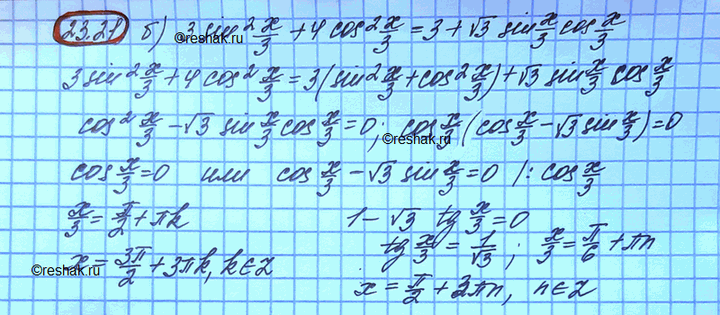 23.27 б) 3 sin² x/3 + 4 cos² x/3 = 3 + √3 sin x/3 cos x/3
©reshak.ru ©reshak.ru
3 sin² x/3 + 4 cos² x/3 = 3(sin² x/3 + cos² x/3) + √3 sin x/3 cos x/3
cos² x/3 - √3 sin x/3 cos x/3 = 0; cos x/3 (cos x/3 - √3 sin x/3) = 0
©reshak.ru
cos x/3 = 0 или cos x/3 - √3 sin x/3 = 0 |: cos x/3
x/3 = π/2 + πk 1 - √3 tg x/3 = 0
tg x/3 = 1/√3 ; x/3 = π/6 + πn
x = 3π/2 + 3πk, k∈Z
©reshak.ru
x = π/2 + 3πn, n∈Z